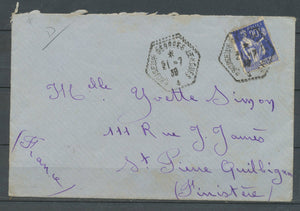 21-7
39
Melle Yvette Simon
111 Rue J. Jaurès
St Pierre Quilbignon
(Finistère)
(France)